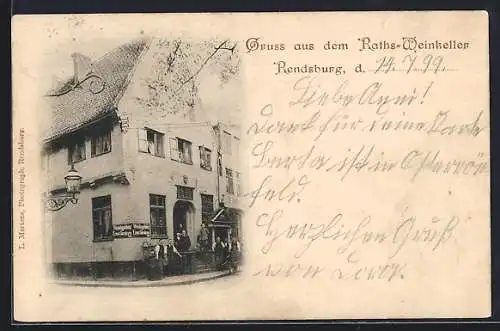 Gruss aus dem Raths-Weinkeller
Rendsburg, d. 14.7.99.
Liebe Anni!
Dank für deine Karte
Berta ist in Osterrön-
feld.
Herzlichen Gruß
von
L. Martens, Photograph, Rendsburg.